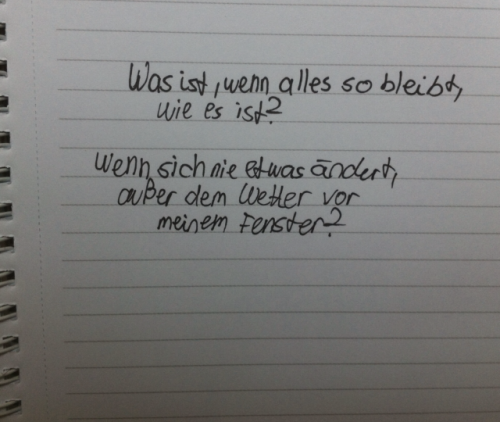 Was ist, wenn alles so bleibt,
wie es ist?
Wenn sich nie etwas ändert,
außer dem Wetter vor
meinem Fenster?